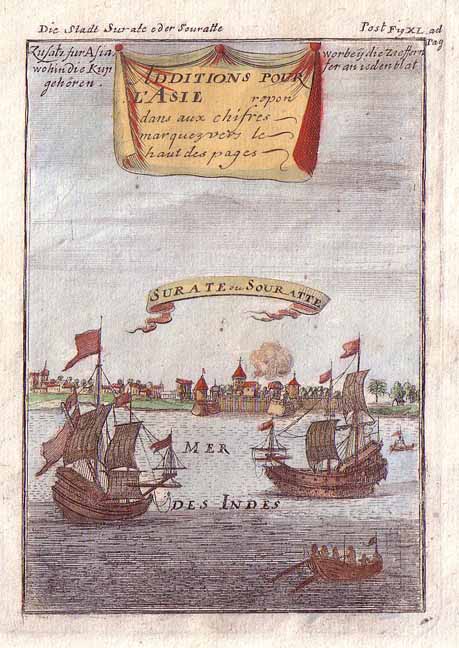 Die Stadt Surate oder Souratte
Post Fig XL. ad Pag
Zusatz fur Asia.
wohin die Kup
gehören.
worbeÿ die zieffern
fer an ieden blat
ADDITIONS POUR
L'ASIE repon
dans aux chifres
marquez vers le
haut des pages
SURATE ou SOURATTE
MER
DES INDES